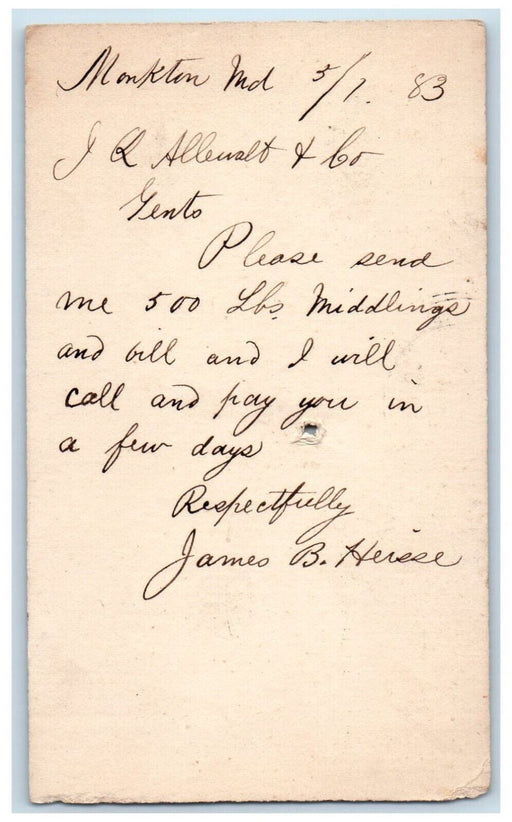 Monkton Md 5/1. 83
J Q Allewalt & Co
Gents
Please send
me 500 Lbs. Middlings
and bill and I will
call and pay you in
a few days
Respectfully
James B. Heisse